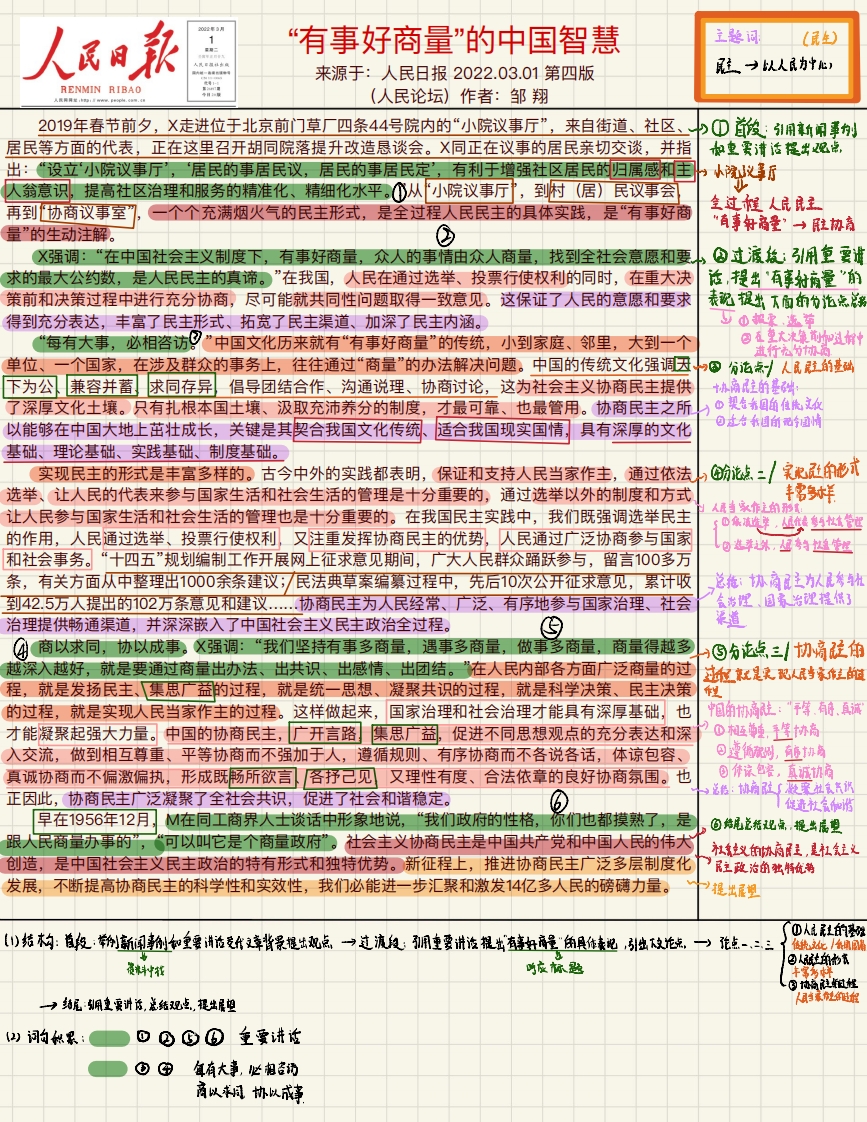 人民日报
RENMIN RIBAO
人民网网址:http://www.people.com.cn
2022年3月
1
星期二
人民日报社出版
“有事好商量”的中国智慧
来源于：人民日报 2022.03.01 第四版
（人民论坛）作者：邹 翔
主题词 （民主）
民主 → 以人民为中心
2019年春节前夕，X走进位于北京前门草厂四条44号院内的“小院议事厅”，来自街道、社区、
居民等方面的代表，正在这里召开胡同院落提升改造恳谈会。X同正在议事的居民亲切交谈，并指
出：“设立‘小院议事厅’，‘居民的事居民议，居民的事居民定’，有利于增强社区居民的归属感和主
人翁意识，提高社区治理和服务的精准化、精细化水平。①从“小院议事厅”，到村（居）民议事会，
再到“协商议事室”，一个个充满烟火气的民主形式，是全过程人民民主的具体实践，是“有事好商
量”的生动注解。
②
X强调：“在中国社会主义制度下，有事好商量，众人的事情由众人商量，找到全社会意愿和要
求的最大公约数，是人民民主的真谛。”在我国，人民在通过选举、投票行使权利的同时，在重大决
策前和决策过程中进行充分协商，尽可能就共同性问题取得一致意见。这保证了人民的意愿和要求
得到充分表达，丰富了民主形式、拓宽了民主渠道、加深了民主内涵。
“每有大事，必相咨访。③”中国文化历来就有“有事好商量”的传统，小到家庭、邻里，大到一个
单位、一个国家，在涉及群众的事务上，往往通过“商量”的办法解决问题。中国的传统文化强调天
下为公，兼容并蓄，求同存异，倡导团结合作、沟通说理、协商讨论，这为社会主义协商民主提供
了深厚文化土壤。只有扎根本国土壤、汲取充沛养分的制度，才最可靠、也最管用。协商民主之所
以能够在中国大地上茁壮成长，关键是其契合我国文化传统、适合我国现实国情，具有深厚的文化
基础、理论基础、实践基础、制度基础。
实现民主的形式是丰富多样的。古今中外的实践都表明，保证和支持人民当家作主，通过依法
选举、让人民的代表来参与国家生活和社会生活的管理是十分重要的，通过选举以外的制度和方式
让人民参与国家生活和社会生活的管理也是十分重要的。在我国民主实践中，我们既强调选举民主
的作用，人民通过选举、投票行使权利，又注重发挥协商民主的优势，人民通过广泛协商参与国家
和社会事务。“十四五”规划编制工作开展网上征求意见期间，广大人民群众踊跃参与，留言100多万
条，有关方面从中整理出1000余条建议；民法典草案编纂过程中，先后10次公开征求意见，累计收
到42.5万人提出的102万条意见和建议……协商民主为人民经常、广泛、有序地参与国家治理、社会
治理提供畅通渠道，并深深嵌入了中国社会主义民主政治全过程。
④ 商以求同，协以成事。X强调：“我们坚持有事多商量，遇事多商量，做事多商量，商量得越多
⑤
越深入越好，就是要通过商量出办法、出共识、出感情、出团结。”在人民内部各方面广泛商量的过
程，就是发扬民主、集思广益的过程，就是统一思想、凝聚共识的过程，就是科学决策、民主决策
的过程，就是实现人民当家作主的过程。这样做起来，国家治理和社会治理才能具有深厚基础，也
才能凝聚起强大力量。中国的协商民主，广开言路，集思广益，促进不同思想观点的充分表达和深
入交流，做到相互尊重、平等协商而不强加于人，遵循规则、有序协商而不各说各话，体谅包容、
真诚协商而不偏激偏执，形成既畅所欲言、各抒己见，又理性有度、合法依章的良好协商氛围。也
正因此，协商民主广泛凝聚了全社会共识，促进了社会和谐稳定。
⑥
早在1956年12月，M在同工商界人士谈话中形象地说，“我们政府的性格，你们也都摸熟了，是
跟人民商量办事的”，“可以叫它是个商量政府”。社会主义协商民主是中国共产党和中国人民的伟大
创造，是中国社会主义民主政治的特有形式和独特优势。新征程上，推进协商民主广泛多层制度化
发展，不断提高协商民主的科学性和实效性，我们必能进一步汇聚和激发14亿多人民的磅礴力量。
① 首段：引用新闻事例
和重要讲话提出观点
小院议事厅
全过程人民民主
“有事好商量” → 民主协商
② 过渡段：引用重要讲
话，提出“有事好商量”的
表现 提出下面的分论点总起
② 在重大决策前和过程中
进行充分协商
③ 分论点一/ 人民民主的基础
协商民主的基础：
① 契合我国的传统文化
② 适合我国的现实国情
④分论点二/ 实现民主的形式
丰富多样
人民当家作主的形式
总结：协商民主为人民参与社
会治理、国家治理提供了
渠道
⑤分论点三/ 协商民主的
过程就是实现人民当家作主的过
程
中国的协商民主：“平等、有序、真诚”
① 相互尊重，平等协商
② 遵循规则，有序协商
③ 体谅包容，真诚协商
总结：协商民主 凝聚社会共识
促进社会和谐
⑥结尾总结观点，提出展望
社会主义的协商民主，是社会主义
民主政治的独特优势
提出展望
(1) 结构：首段：举例新闻事例和重要讲话交代文章背景提出观点 → 过渡段：引用重要讲话提出“有事好商量”的具体表现，引出下文论点 → 论点一、二、三
呼应标题
① 人民民主的基础
传统文化/我国国情
② 人民民主的形式
丰富多样
③ 协商民主的过程
人民当家作主的过程
→ 结尾：引用重要讲话，总结观点，提出展望
(2) 词句积累： ① ② ⑤ ⑥ 重要讲话
③ ④ 每有大事，必相咨访
商以求同，协以成事